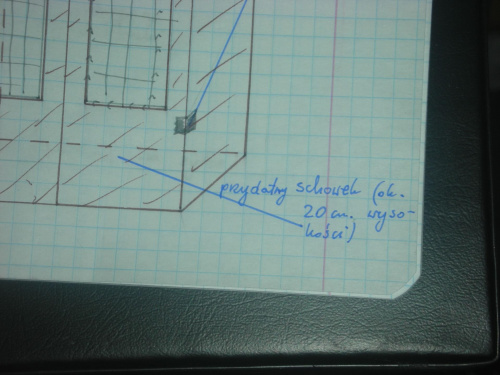 przydatny schowek (ok.
20 cm. wyso-
kości)